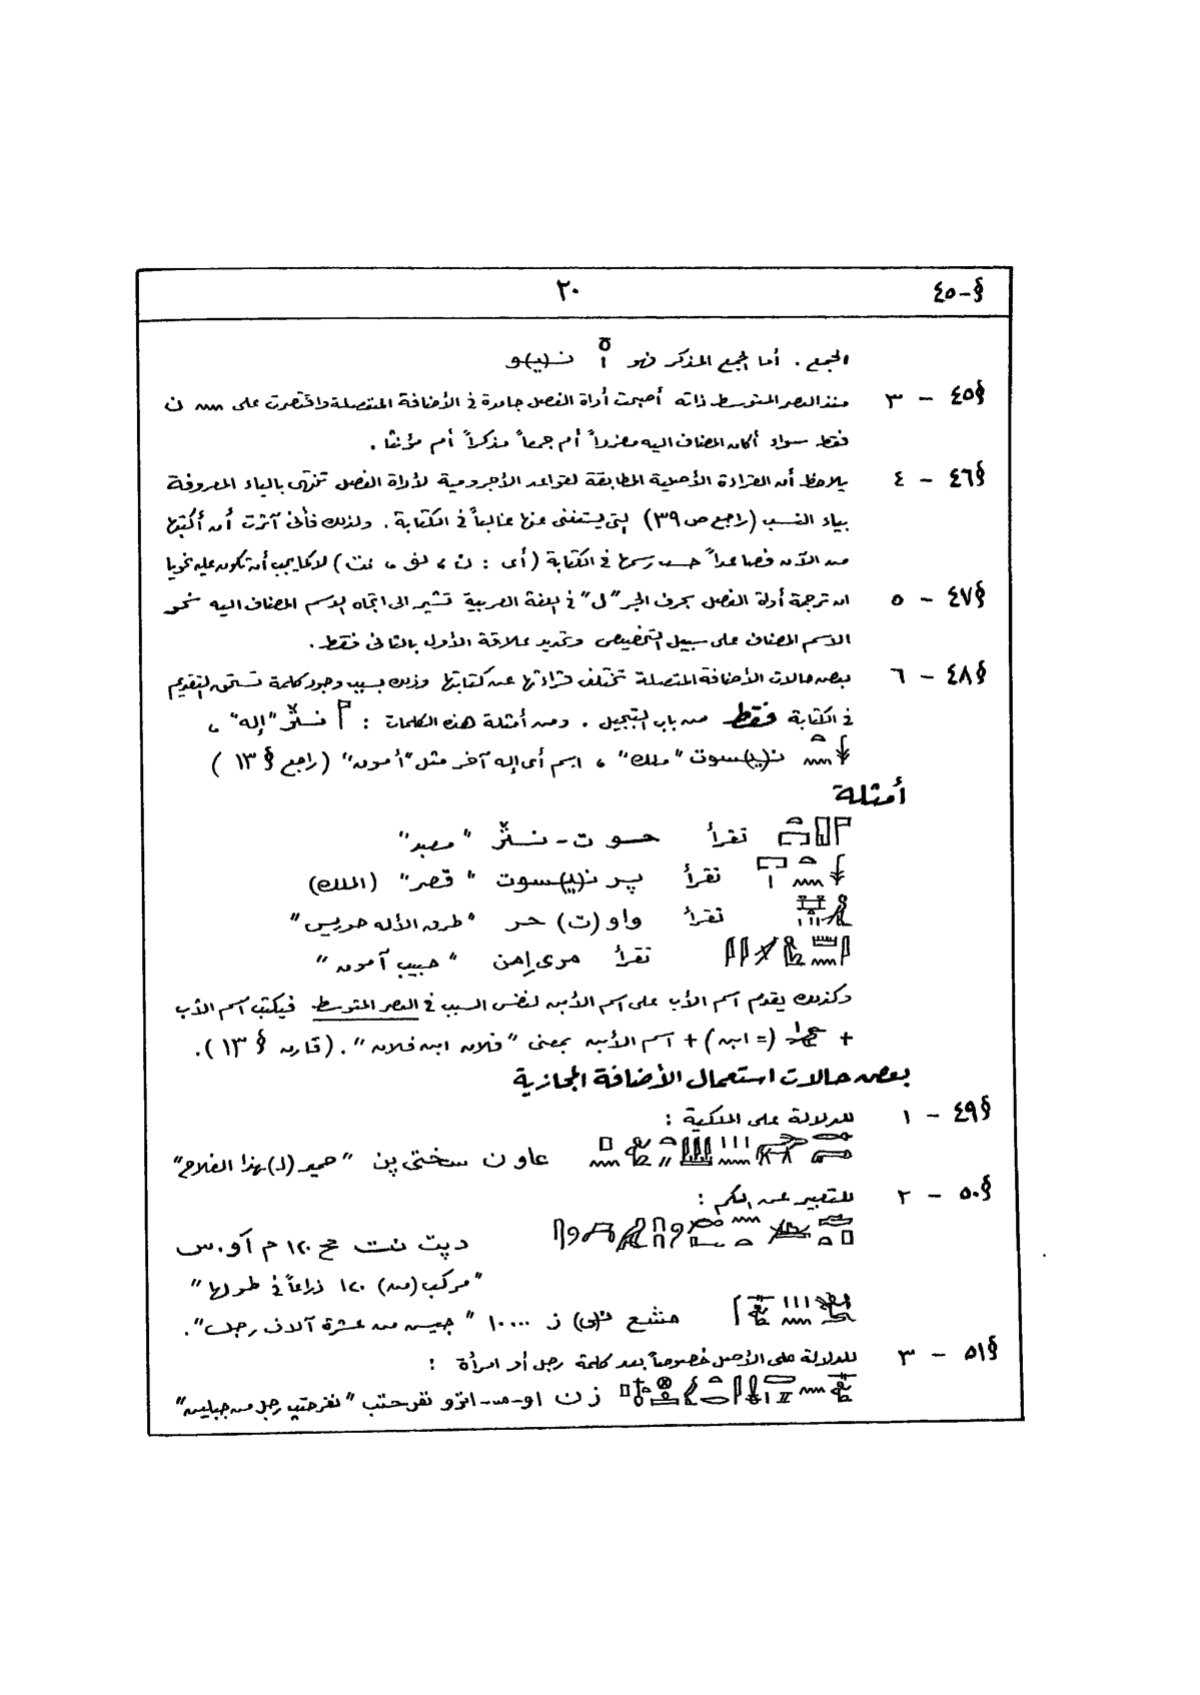 §-٤٥
٢٠
الجمع . أما الجمع المذكر فهو ن(ي)و
§٤٥ - ٣ منذ العصر المتوسط ذاته أصبحت أداة الفصل جامدة فى الأضافة المتصلة واقتصرت على ن
فقط سواء أكان المضاف اليه مفرداً أم جمعاً مذكراً أم مؤنثا .
§٤٦ - ٤ يلاحظ أن القراءة الأصلية المطابقة لقواعد الأجرومية لأداة الفصل تنتهى بالياء المعروفة
بياء النسب (راجع ص ٣٩) التى يستغنى عنها غالباً فى الكتابة . ولذلك فأنى آثرت أن أكتبها
من الآن فصاعداً حسب رسمها فى الكتابة (أى : ن ، نو ، نت) لا كما يجب أن تكون عليه نحويا
§٤٧ - ٥ ان ترجمة أداة الفصل بحرف الجر "ل" فى اللغة العربية تشير الى اتجاه الاسم المضاف اليه نحو
الاسم المضاف على سبيل التخصيص وتحديد علاقة الأول بالثانى فقط .
§٤٨ - ٦ بعض حالات الأضافة المتصلة تختلف قراءتها عن كتابتها وذلك بسبب وجود كلمة تستحق التقديم
فى الكتابة فقط من باب التبجيل . ومن أمثلة هذه الكلمات : نـثر "إله" ،
ن(ي)سوت "ملك" ، اسم أى إله آخر مثل "أمون" (راجع § ١٣ )
أمثلة
تقرأ حوت - نـثر "معبد"
تقرأ پر ن(ي)سوت "قصر" (الملك)
تقرأ واو(ت) حر "طرق الأله حوريس"
تقرأ مرى إمن "حبيب آمون"
وكذلك يقدم اسم الأب على اسم الأبن لنفس السبب فى العصر المتوسط فيكتب اسم الأب
+ (= ابن) + اسم الأبن بمعنى "فلان ابن فلان" . (قارن § ١٣ ) .
بعض حالات استعمال الأضافة المجازية
§٤٩ - ١ للدلالة على الملكية :
عاو ن سختى پن "حمير (لـ) هذا الفلاح"
§٥٠ - ٢ للتعبير عن الكم :
دپت نت مح ١٢٠ م آو.س
"مركب (من) ١٢٠ ذراعاً فى طولها"
مشع ن(ى) ز ١٠٠٠٠ "جيش من عشرة آلاف رجل" .
§٥١ - ٣ للدلالة على الأصل خصوصاً بعد كلمة رجل أو امرأة :
ز ن نفرحتب "نفرحتب رجل من جبلين"